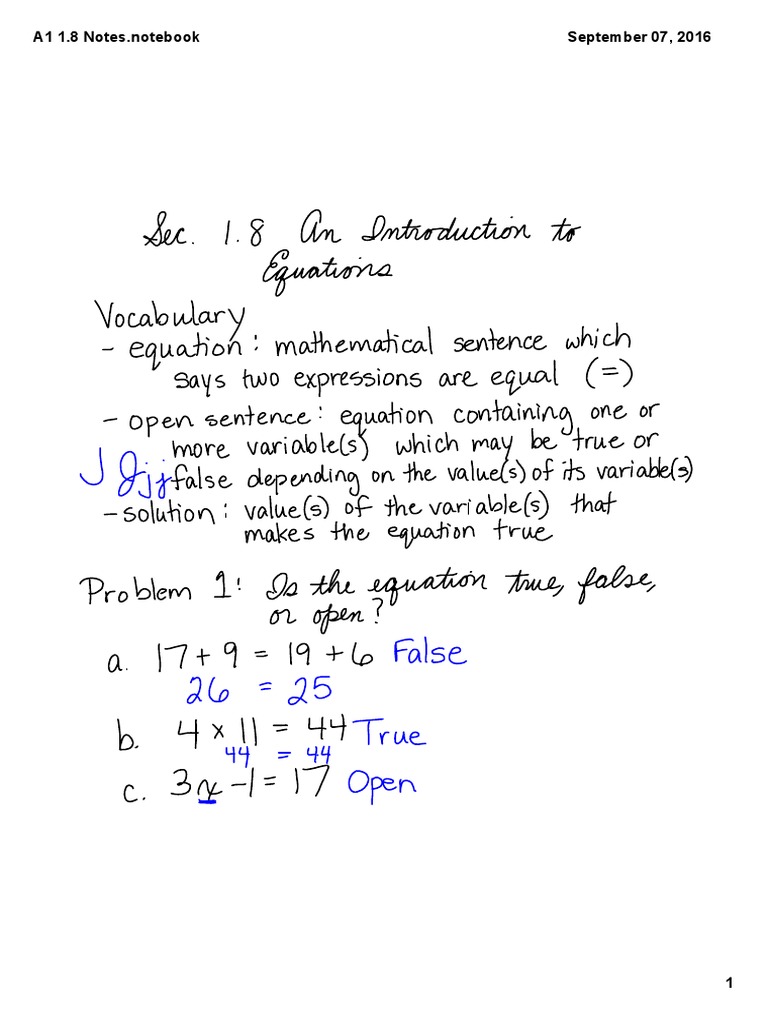 A1 1.8 Notes.notebook
September 07, 2016
Sec. 1.8 An Introduction to
Equations
Vocabulary
- equation: mathematical sentence which
says two expressions are equal (=)
- open sentence: equation containing one or
more variable(s) which may be true or
J Jjj false depending on the value(s) of its variable(s)
- solution: value(s) of the variable(s) that
makes the equation true
Problem 1: Is the equation true, false,
or open?
a. 17 + 9 = 19 + 6 False
26 = 25
b. 4 x 11 = 44 True
44 = 44
c. 3x - 1 = 17 Open
1